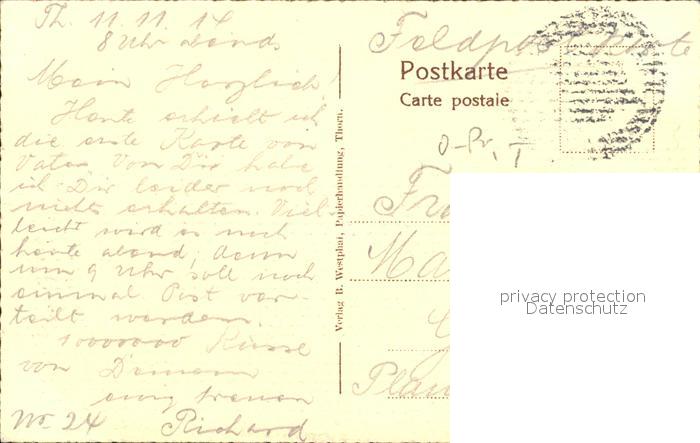 Th. 11.11.14
8 Uhr abend.
Mein Herzlieb!
Heute erhielt ich
die erste Karte von
Vater. Von Dir habe
ich Dir leider noch
nichts erhalten. Viel-
leicht wird es noch
heute abend, denn
um 9 Uhr soll noch
einmal Post ver-
teilt werden.
10000000 Küsse
von Deinem
ewig treuen
No. 24 Richard
Verlag B. Westphal, Papierhandlung, Thorn.
Feldpost Karte
Postkarte
Carte postale
Plau
privacy protection
Datenschutz